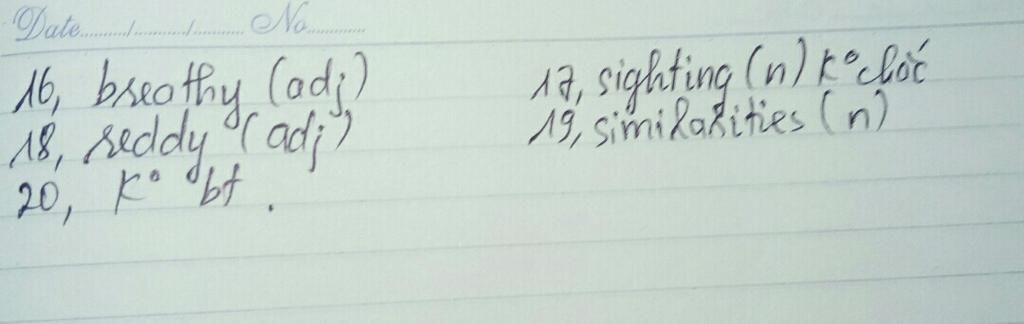 Date........../........../.......... No.............
16, breathy (adj) 17, sighting (n) k° chắc
18, reddy (adj) 19, similarities (n)
20, K° bt.